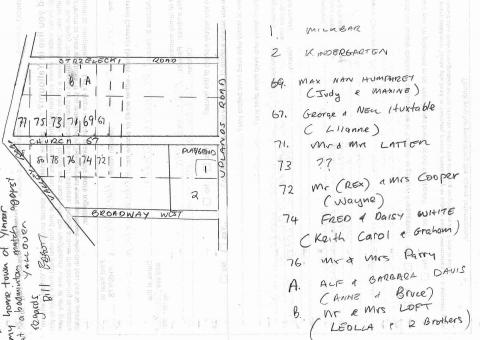 STRZELECKI ROAD
B A
77 75 73 71 69 67
CHURCH 67
80 78 76 74 72
PLAYGRND
1
2
BROADWAY WEST
UPLANDS ROAD
VALLEY
my home town of Yinnar
at a badminton match against
YALLOURN
regards
Bill
1. MILKBAR
2 KINDERGARTEN
69. MAX NAN HUMPHREY
(Judy & MAXINE)
67. George & NELL Huxtable
( Lilianne)
71. Mr & Mrs LATTER
73 ??
72 Mr (REX) & Mrs Cooper
(Wayne)
74 FRED & DAISY WHITE
(Keith Carol & Graham)
76. Mr & Mrs Parry
A. ALF & BARBARA DAVIS
(ANNE & Bruce)
B. Mr & Mrs LOFT
(LEOLLA & 2 Brothers)